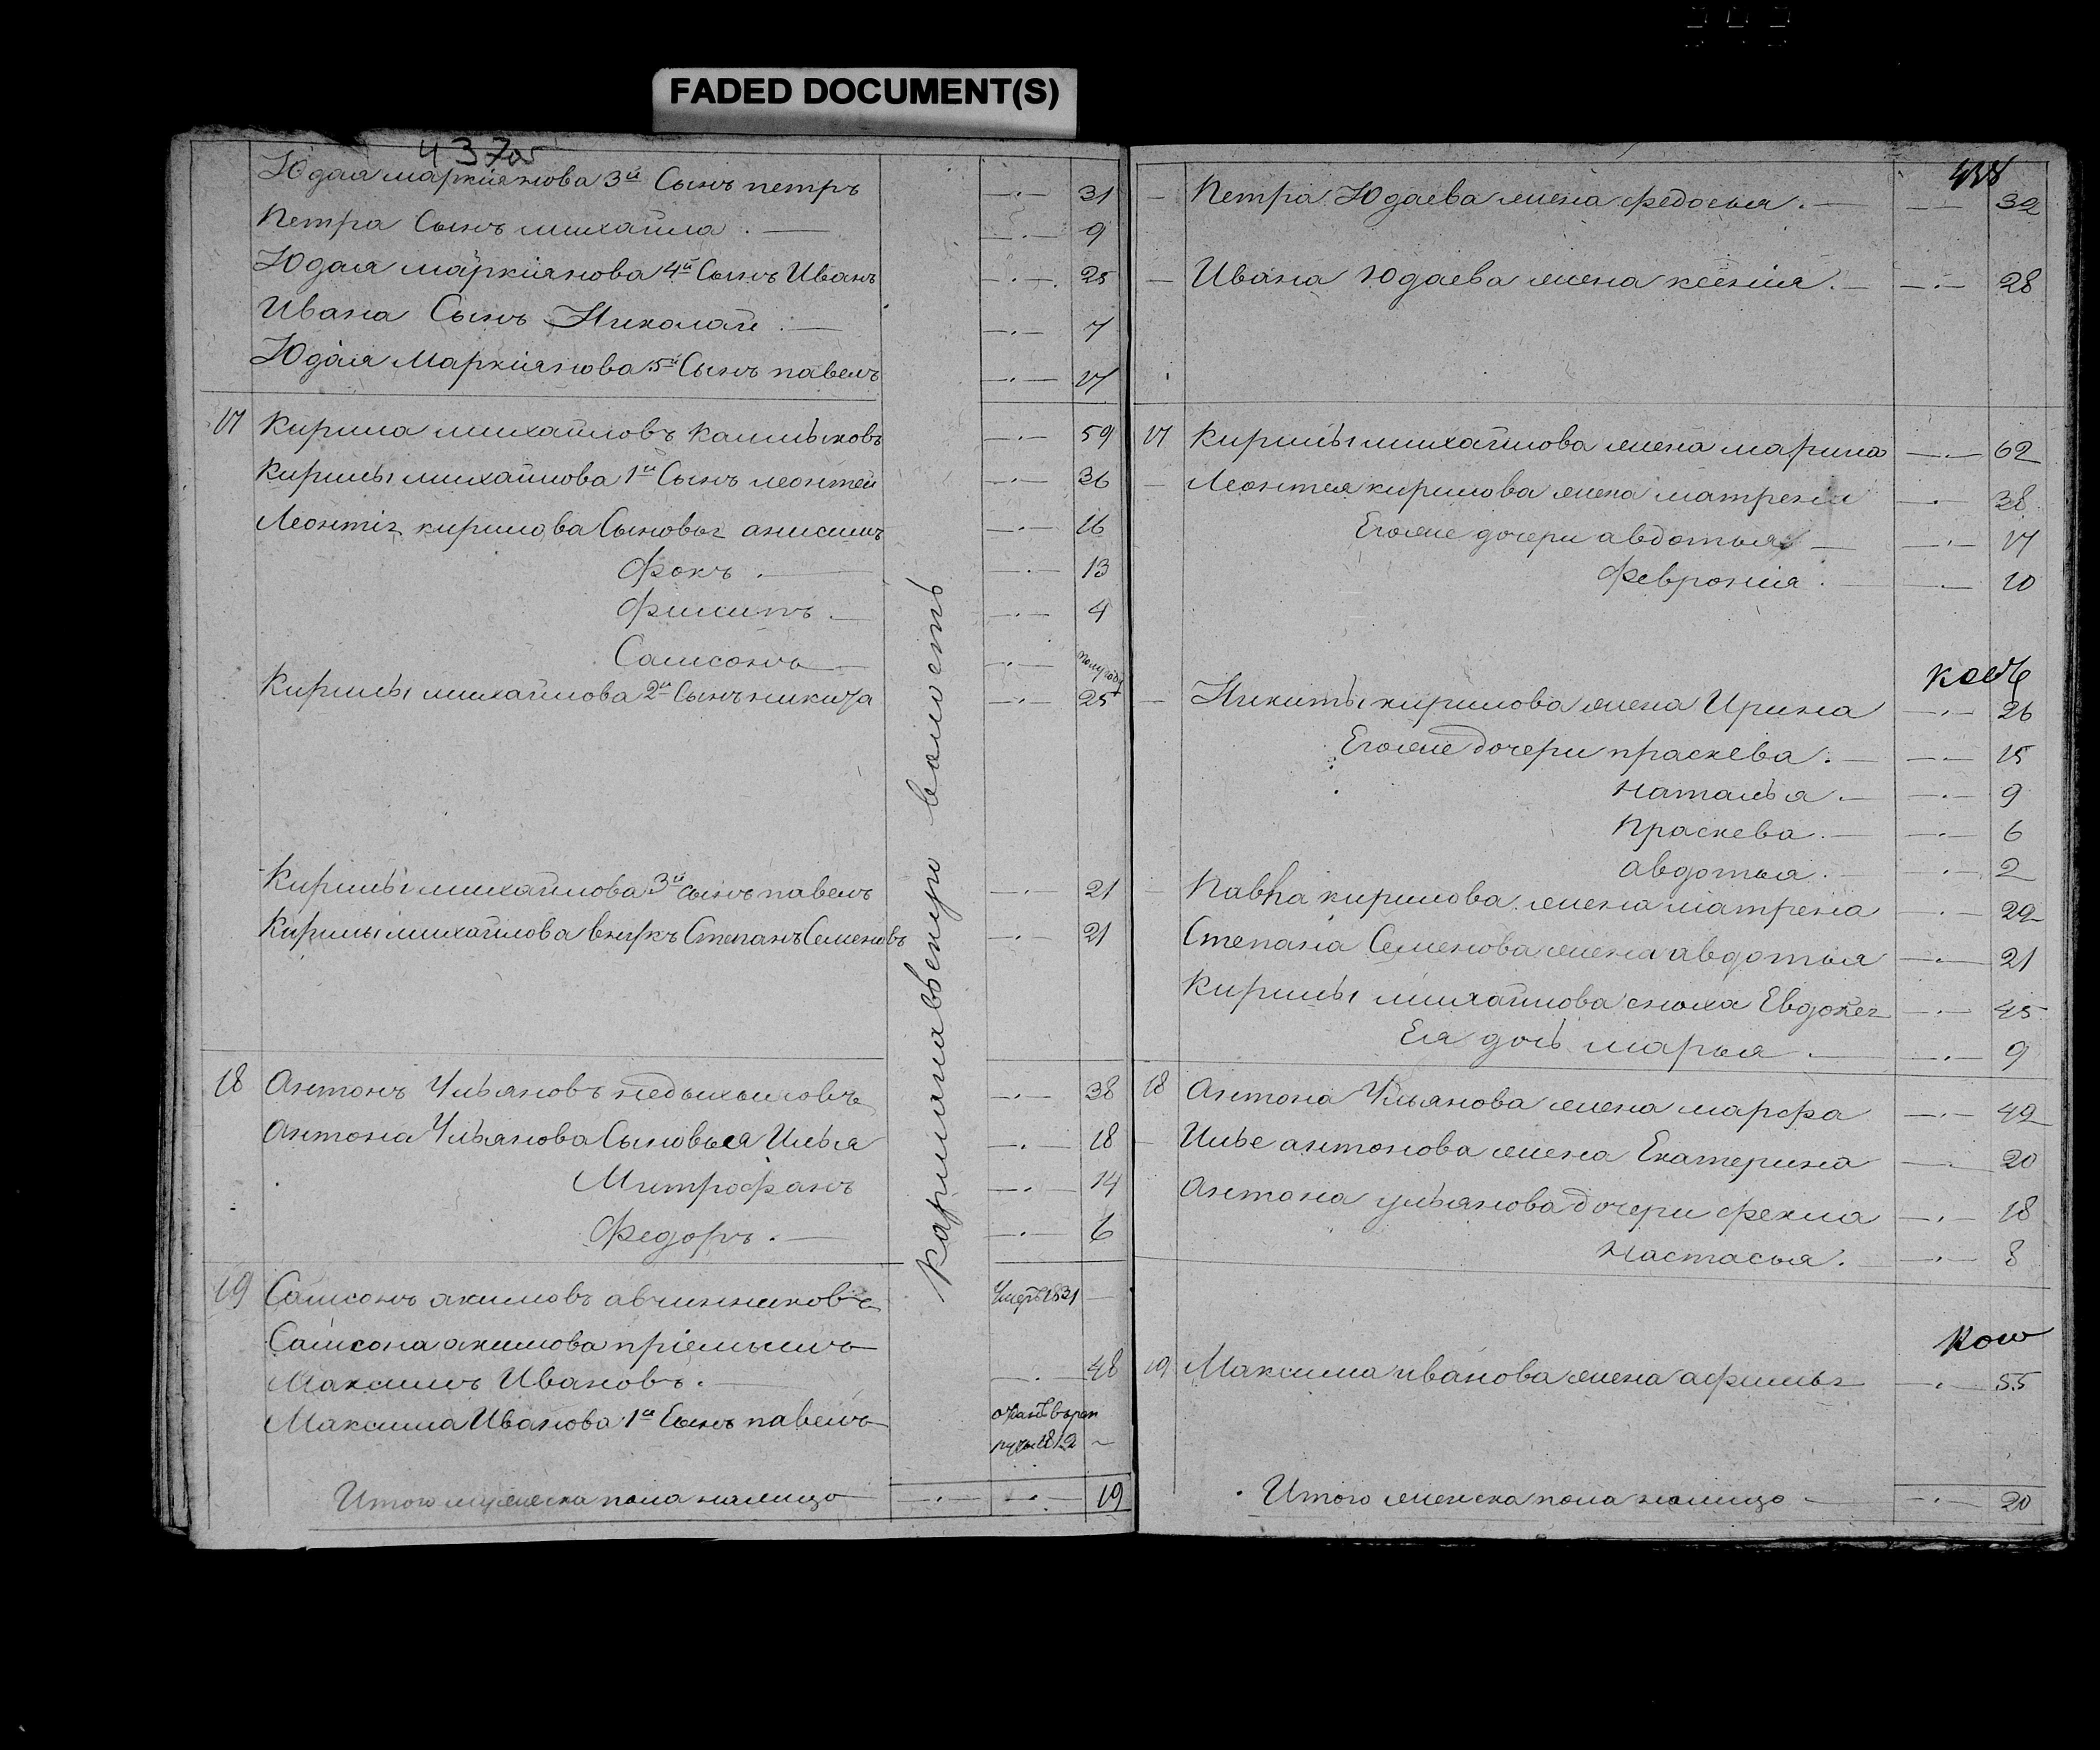 FADED DOCUMENT(S)
437об
Юдая маркіянова 3й Сынъ петръ —·— 31
Петра Сынъ михайла. —·— 9
Юдая маркіянова 4й Сынъ Иванъ —·— 25
Ивана Сынъ Николай —·— 7
Юдая Маркіянова 5й Сынъ павелъ —·— 17
17 Кирила михайловъ Калмыковъ —·— 59
Кирилы михайлова 1й Сынъ леонтей —·— 36
Леонтія кирилова Сыновья анисимъ —·— 16
Фокъ. —·— 13
Филипъ. —·— 4
Самсонъ —·— полугода
Кирилы михайлова 2й Сынъ никита —·— 25
Кирилы михайлова 3й сынъ павелъ —·— 21
Кирилы михайлова внукъ Степанъ Семеновъ —·— 21
18 Антонъ Ульяновъ —·— 38
Антона Ульянова Сыновья Илья —·— 18
Митрофанъ —·— 14
Федоръ. —·— 6
19 Самсонъ акимовъ авчинниковъ Умеръ 1831 —
Самсона акимова пріемышъ
Максимъ Ивановъ. —·— 48
Максима Иванова 1й Сынъ павелъ отданъ въ рек
руты 1812 —
Итого мужеска пола налицо —·— —·— 19
волость
438
— Петра Юдаева жена федосья. —·— 32
— Ивана Юдаева жена ксенія. —·— 28
17 Кирилы михайлова жена марина —·— 62
— Леонтея кирилова жена матрена —·— 38
Егожъ дочери авдотья —·— 17
Февронія. —·— 10
— Никиты кирилова жена Ирина —·— 26
Егоже дочери праскева. —·— 15
наталья. —·— 9
Праскева. —·— 6
авдотья. —·— 2
— Павла кирилова жена матрена —·— 22
Степана Семенова жена авдотья —·— 21
Кирилы михайлова сноха Евдокея —·— 45
Ея дочь марья. —·— 9
18 Антона Ульянова жена марфа —·— 42
— Илье антонова жена Екатерина —·— 20
Антона ульянова дочери фекла —·— 18
настасья. —·— 8
19 Максима иванова жена —·— 55
Итого женска пола налицо —·— 20